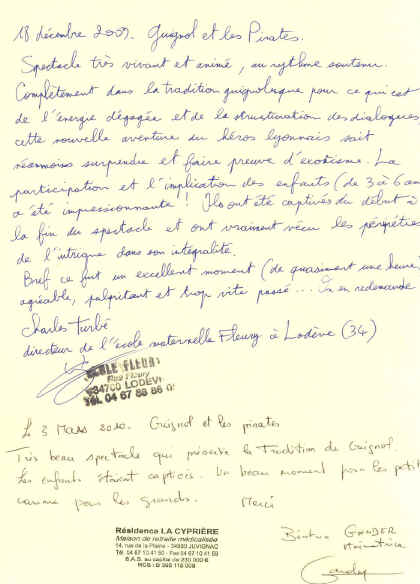 18 décembre 2009. Guignol et les Pirates.
Spectacle très vivant et animé, au rythme soutenu.
Complètement dans la tradition guignolesque pour ce qui est
de l'énergie dégagée et de la structuration des dialogues
cette nouvelle aventure du héros lyonnais sait
néanmoins surprendre et faire preuve d'exotisme. La
participation et l'implication des enfants (de 3 à 6 an
a été impressionnante! Ils ont été captivés du début à
la fin du spectacle et ont vraiment vécu les péripéties
de l'intrigue dans son intégralité.
Bref ce fut un excellent moment (de quasiment une heure)
agréable, palpitant et trop vite passé... On en redemande
Charles Turbé
directeur de l'école maternelle Fleury à Lodève (34)
ECOLE FLEURY
Rue Fleury
34700 LODEV
TEL 04 67 88 86 0
Le 3 Mars 2010. Guignol et les pirates
Très beau spectacle qui préserve la Tradition de Guignol.
Les enfants étaient captivés. Un beau moment pour les petit
comme pour les grands. Merci
Résidence LA CYPRIÈRE
Maison de retraite médicalisée
14, rue de la Plaine - 34990 JUVIGNAC
Tél 04 67 10 41 50 - Fax 04 67 10 41 59
S.A.S. au capital de 230 000 €
Animatrice